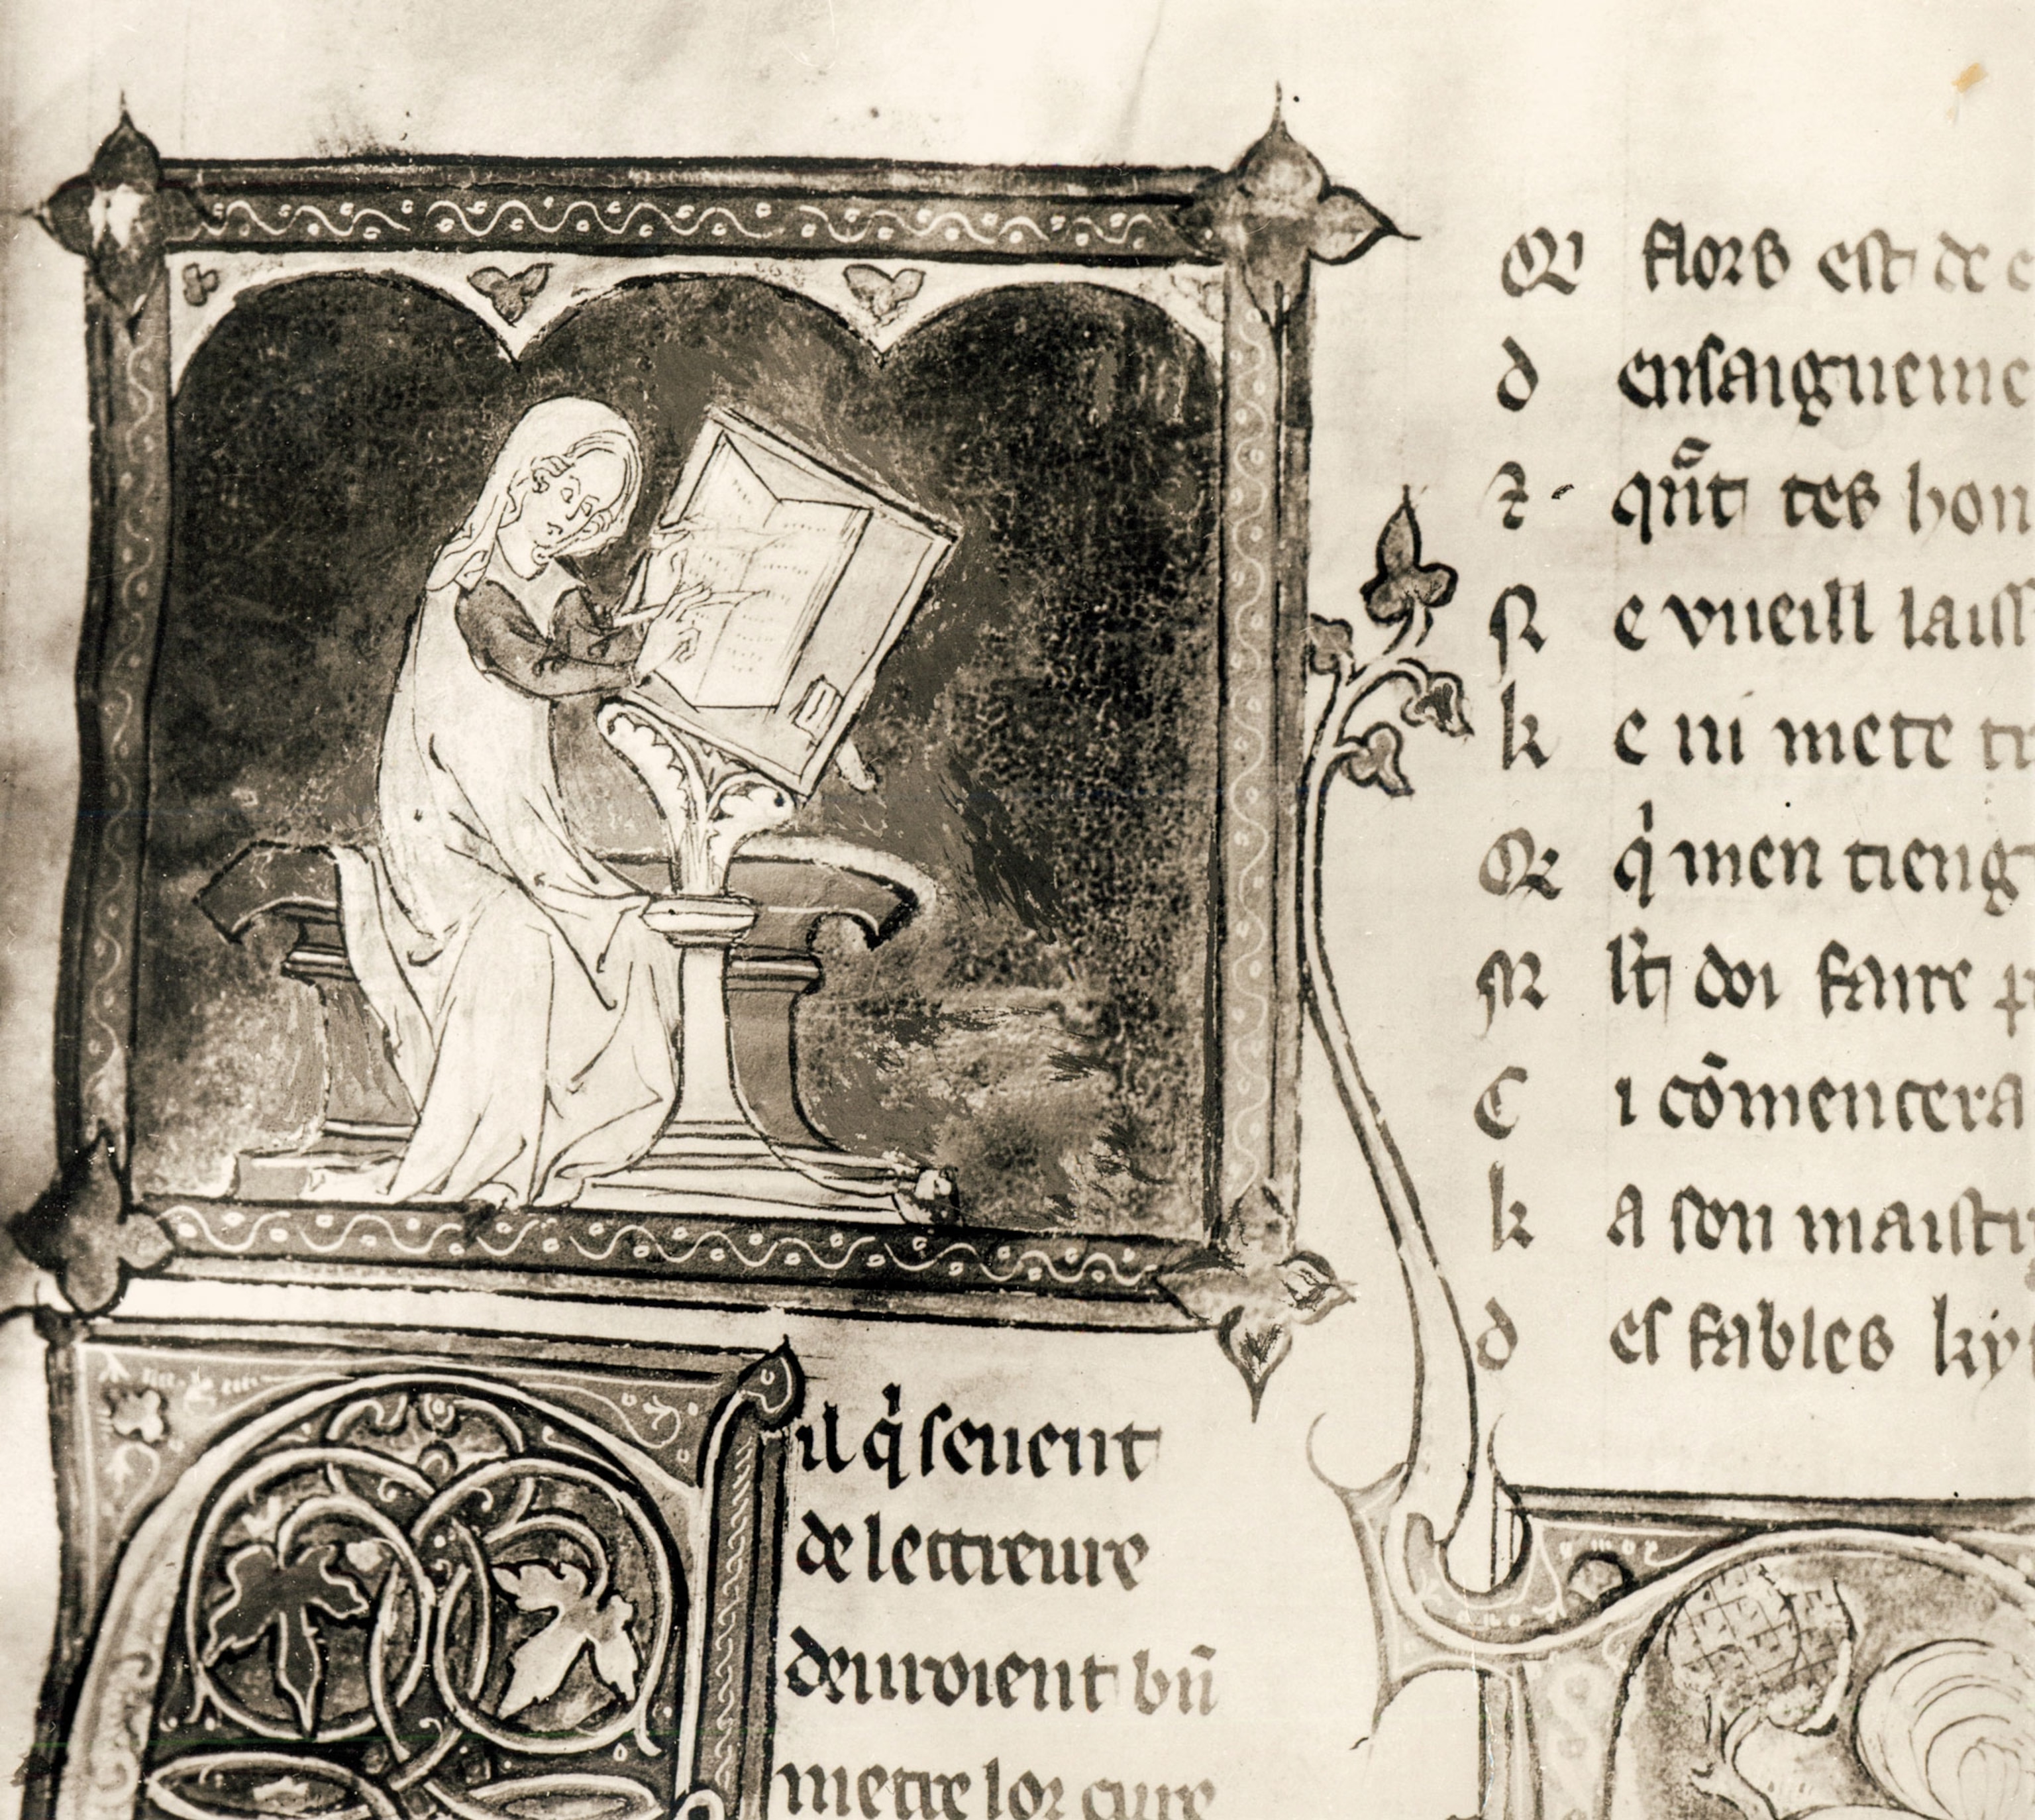 il q̓ seuent
de lettreure
deuroient bn̄
mettre lor cure
Q̓ flors est de
d ensaigneme
⁊ qn̄t tes hon
S e vueill laiss
k e ni mete tr
Q̓ q̓ men tieng
M lt doi faire
C i cōmencera
k a son maistr
d es fables ky